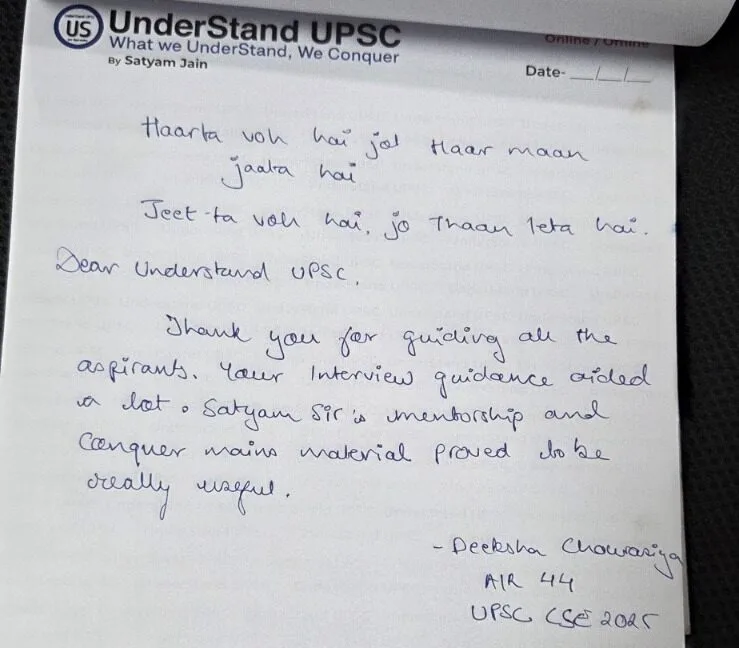 US
UnderStand UPSC
What we UnderStand, We Conquer
By Satyam Jain
Online / Offline
Date- __/__/__
Haarta voh hai jo Haar maan
jaata hai
Jeet-ta voh hai, jo Thaan leta hai.
Dear Understand UPSC.
Thank you for guiding all the
aspirants. Your Interview guidance aided
a lot. Satyam Sir's mentorship and
Conquer mains material proved to be
really useful.
- Deeksha Chowrasiya
AIR 44
UPSC CSE 2025